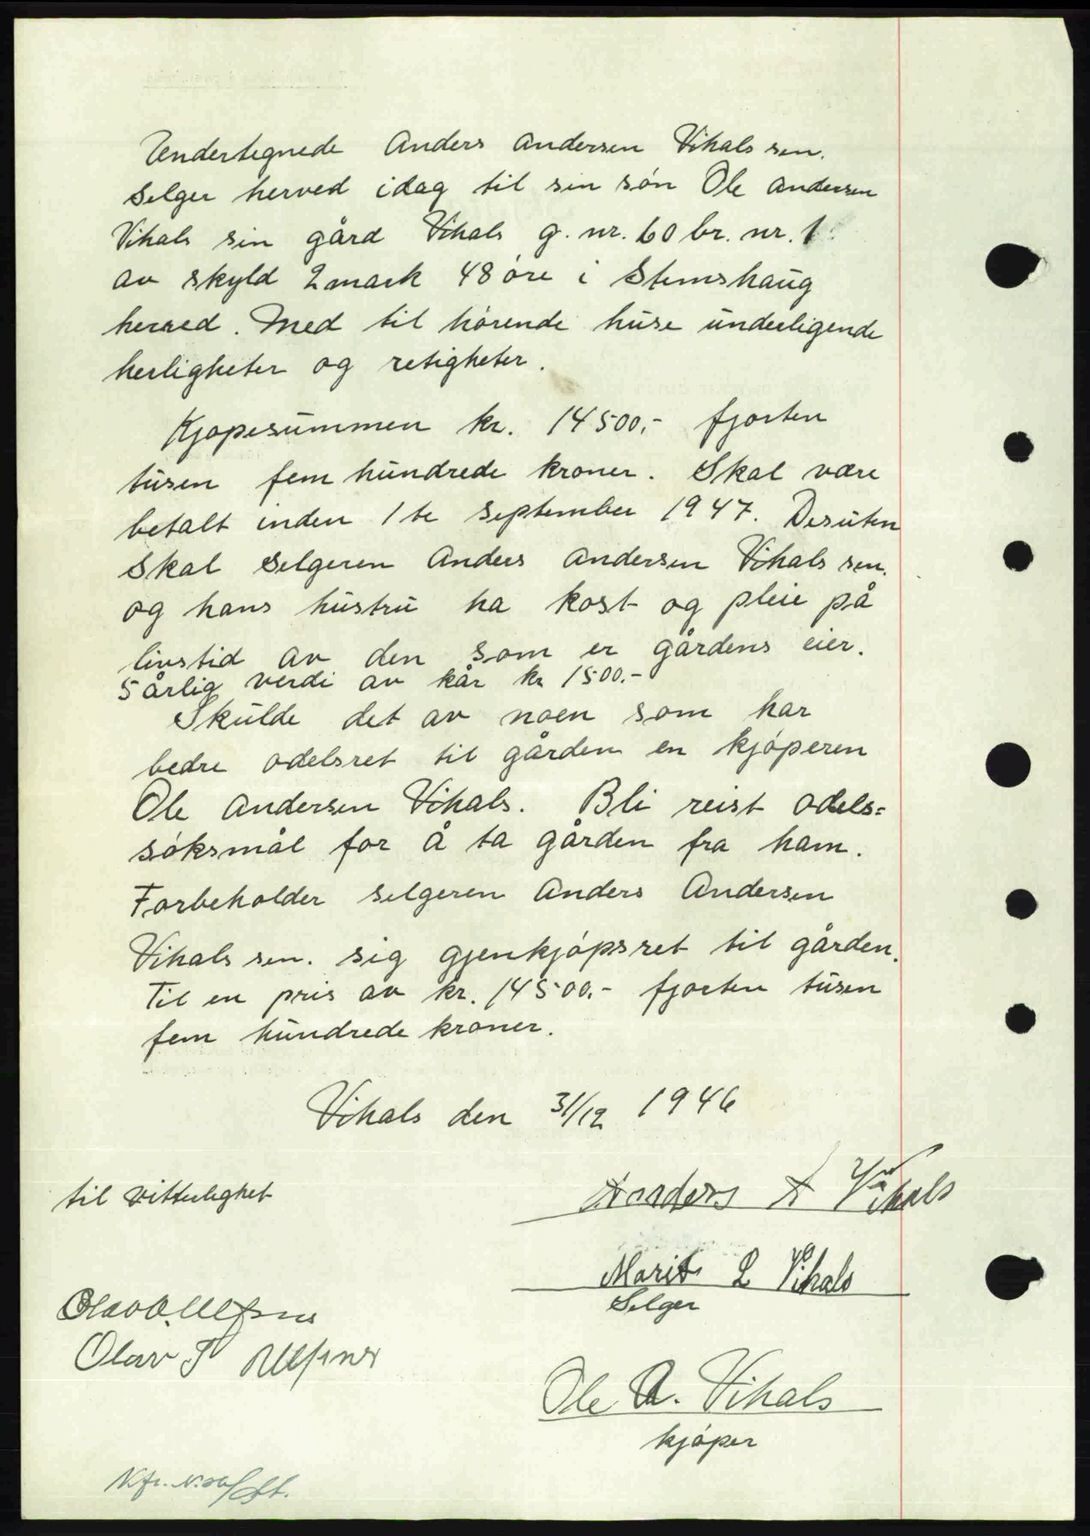 Undertegnede Anders Andersen Vikals sen.
selger herved idag til sin søn Ole Andersen
Vikals sin gård Vikals g. nr. 60 br. nr. 1
av skyld 2 mark 48 øre i Stemshaug
herred. Med til hørende huse underligende
herligheter og retigheter.
Kjøpesummen kr. 14500,- fjorten
tusen fem hundrede kroner. Skal være
betalt inden 1te september 1947. Desuten
skal selgeren Anders Andersen Vikals sen.
og hans hustru ha kost og pleie på
livstid av den som er gårdens eier.
5 årlig verdi av kår kr 1500.-
Skulde det av noen som har
bedre odelsret til gården en kjøperen
Ole Andersen Vikals. Bli reist odels=
søksmål for å ta gården fra ham.
Forbeholder selgeren Anders Andersen
Vikals sen. sig gjenkjøpsret til gården.
Til en pris av kr. 14500.- fjorten tusen
fem hundrede kroner.
Vikals den 31/12 1946
til vitterlighet
Anders A Vikals
Marit L Vikals
Selger
Olav
Olav T
Ole A. Vikals
kjøper